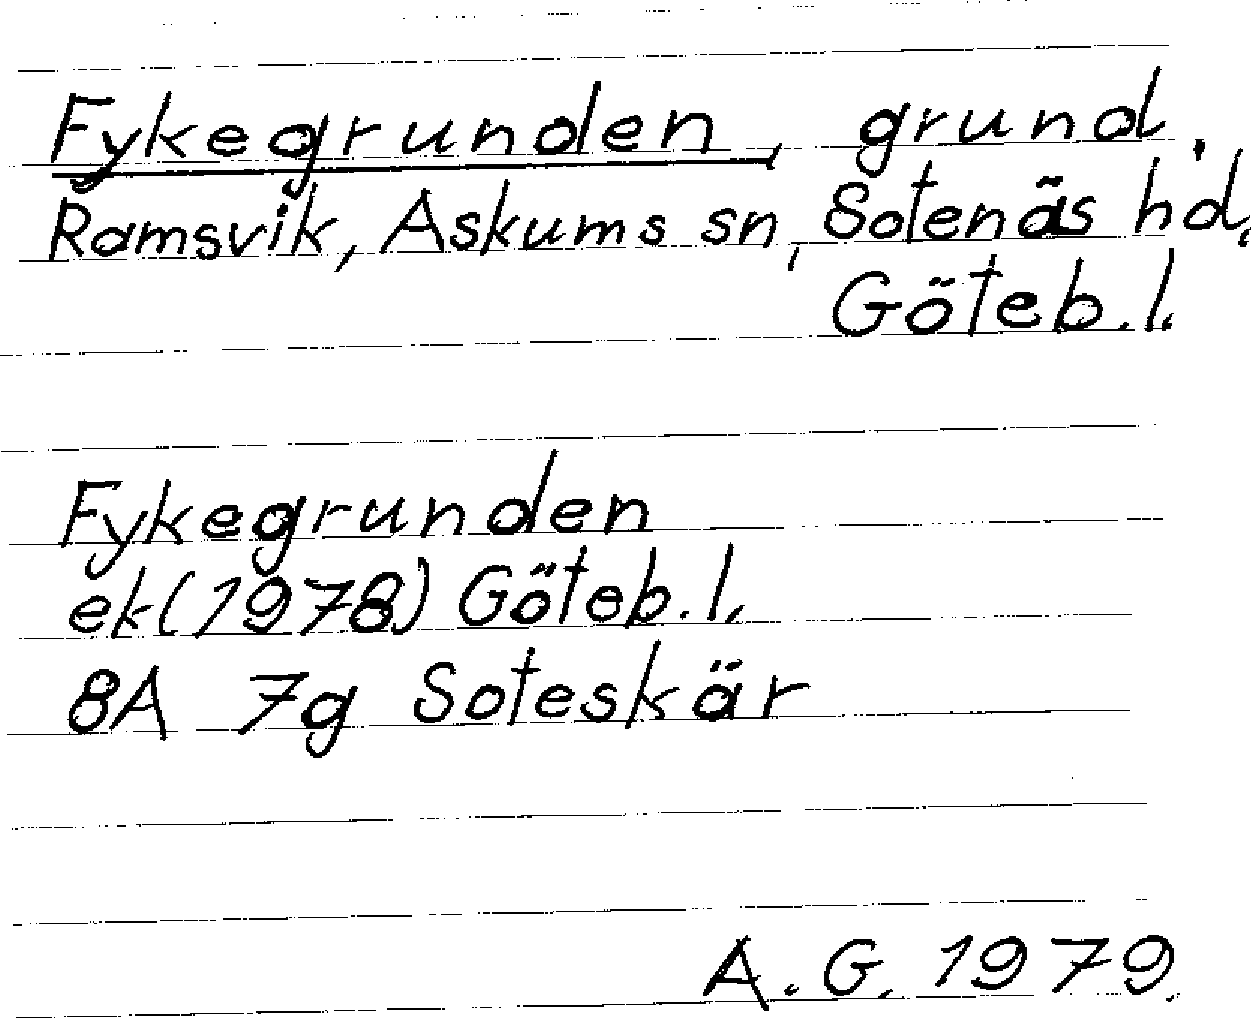 Fykegrunden, grund.
Ramsvik, Askums sn, Sotenäs hd,
Göteb. l.
Fykegrunden
ek (1978) Göteb. l.
8A 7g Soteskär
A. G. 1979.